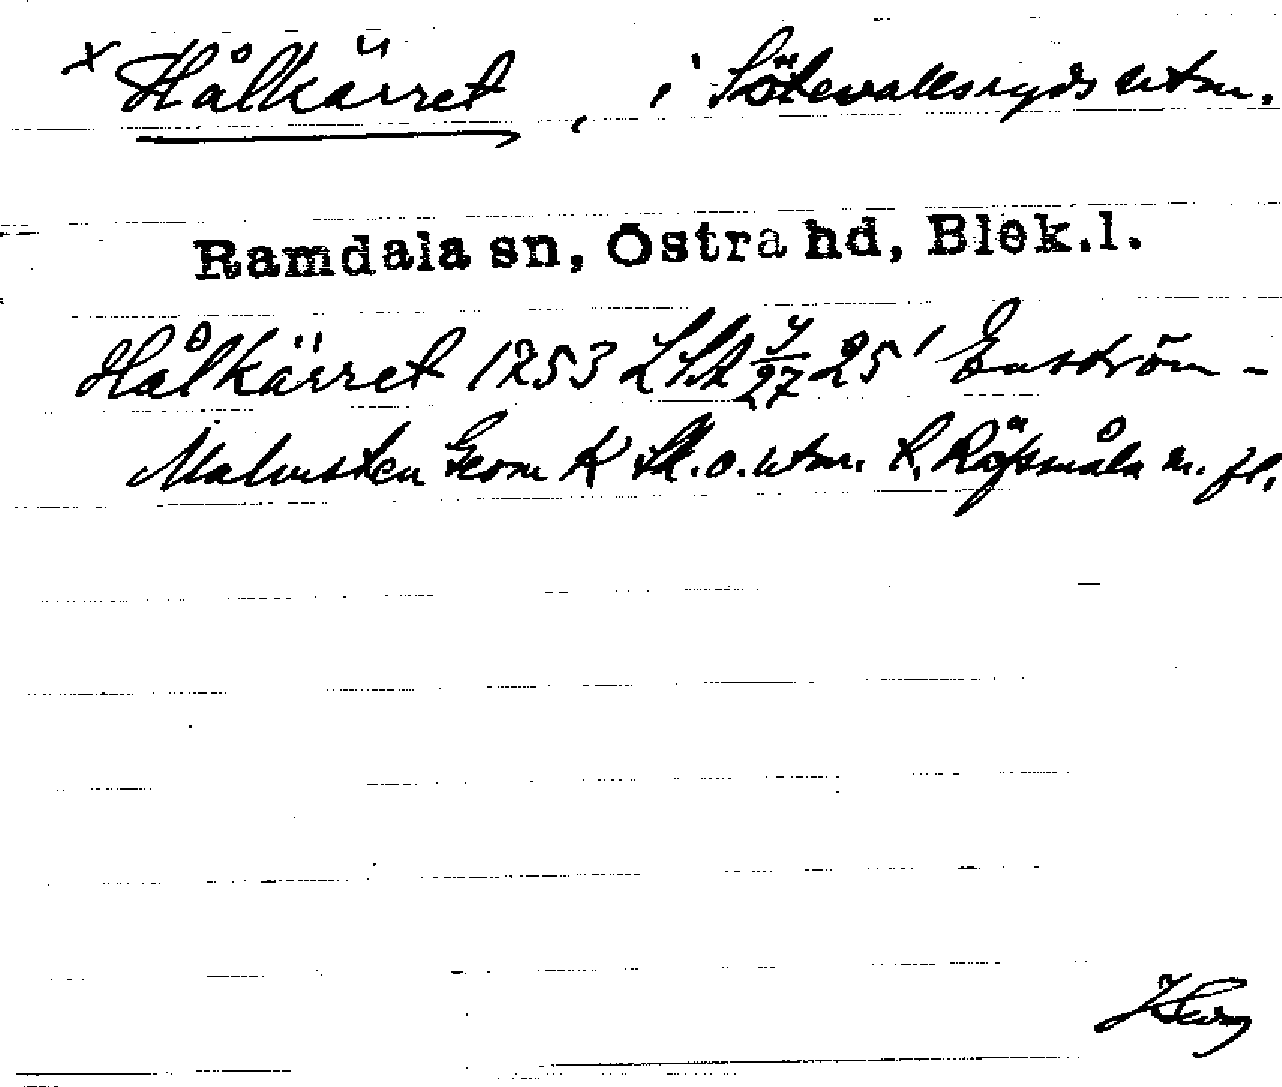 x Hålkärret, i Sötevallsryds utm.
Ramdala sn, Östra hd, Blek.l.
Hålkärret 1253 LSA 7/27 25' Enström-
Malmsten Geom K Sk. o. utm. t. Rössmåla m. fl.